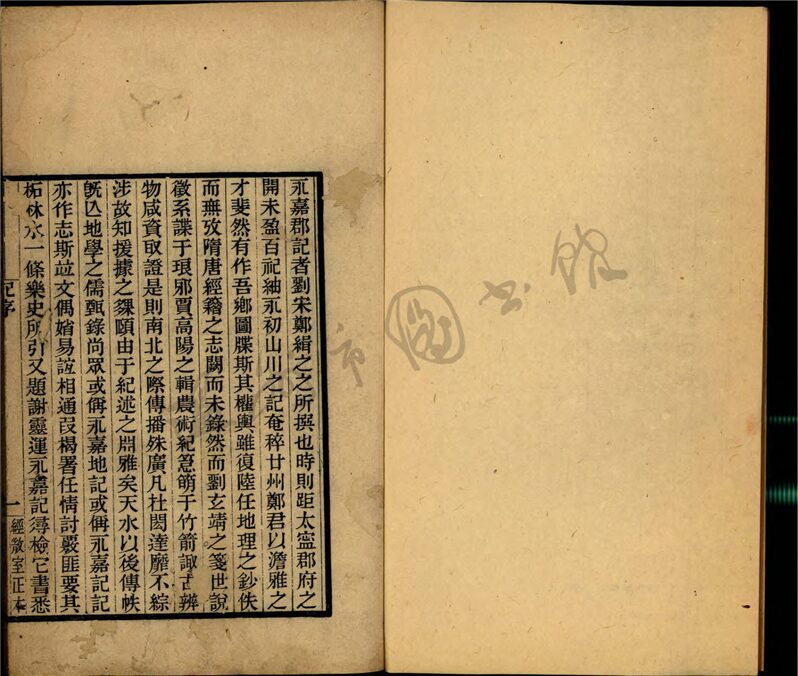 永嘉郡記者劉宋鄭緝之之所撰也時則距太寧郡府之
開未盈百祀紬永初山川之記奄稡廿州鄭君以澹雅之
才斐然有作吾鄉圖牒斯其權輿雖復陸任地理之鈔佚
而無攷隋唐經籍之志闕而未錄然而劉玄靖之箋世說
徵系諜于琅邪賈高陽之輯農術紀䈞萌于竹箭諏古辨
物咸資取證是則南北之際傳播殊廣凡杜閎達靡不綜
涉故知援據之夥頤由于紀述之淵雅矣天水以後傳帙
旣亾地學之儒甄錄尚眾或偁永嘉地記或偁永嘉記記
亦作志斯竝文偶媘易誼相通叚楬署任情討覈匪要其
柘林水一條樂史所引又題謝靈運永嘉記尋檢它書悉
記序
一
經微室正本
市圖書館